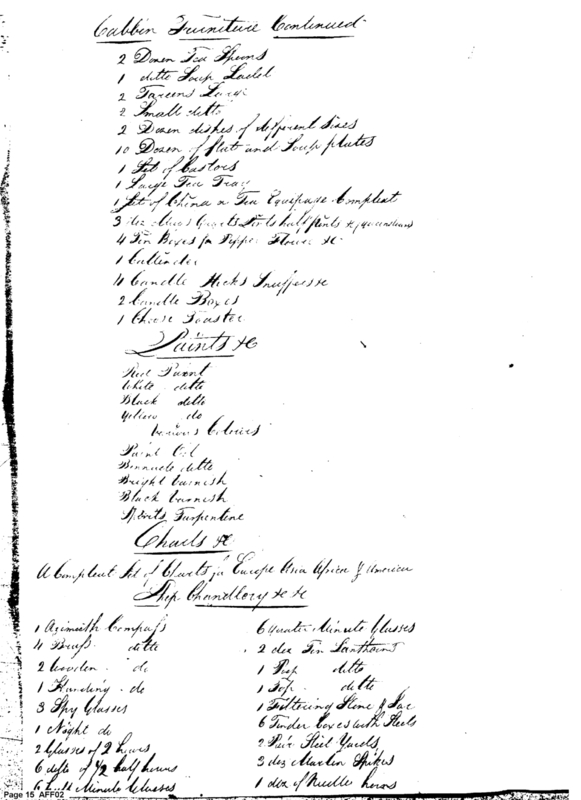 Cabbin Furniture Continued
2 Dozen Tea Spoons
1 ditto Soup Ladel
2 Tareens Large
2 Small ditto
2 Dozen dishes of different Sizes
10 Dozen of flat and Soup plates
1 Set of Castors
1 Large Tea Tray
1 Set of China n Tea Equipage Compleat
3 doz Mugs Quarts Pints half pints &c (Queensware)
4 Tin Boxes for Pepper Flower &c
1 Cullinder
4 Candle Sticks Snuffers &c
2 Candle Boxes
1 Cheese Toaster
Paints &c
Red Paint
White ditto
Black ditto
Yellow do
Various Colours
Paint Oil
Binnacle ditto
Bright Varnish
Black Varnish
Spirits Turpentine
Charts &c
A Compleat Set of Charts for Europe Asia Africa & America
Ship Chandlery &c &c
1 Azimuth Compass
4 Brass ditto
2 Wooden do
1 Standing do
3 Spy Glasses
1 Night do
2 Glasses of 2 hours
6 ditto of 1/2 half hours
6 half Minute Glasses
6 quarter Minute Glasses
2 doz Tin Lanthorns
1 Poop ditto
1 Top ditto
1 Filtering Stone & Jar
6 Tinder Boxes with Steels
2 Pair Stil Yards
3 doz Marlin Spikes
1 doz of Needle horns
Page 15 AFF02